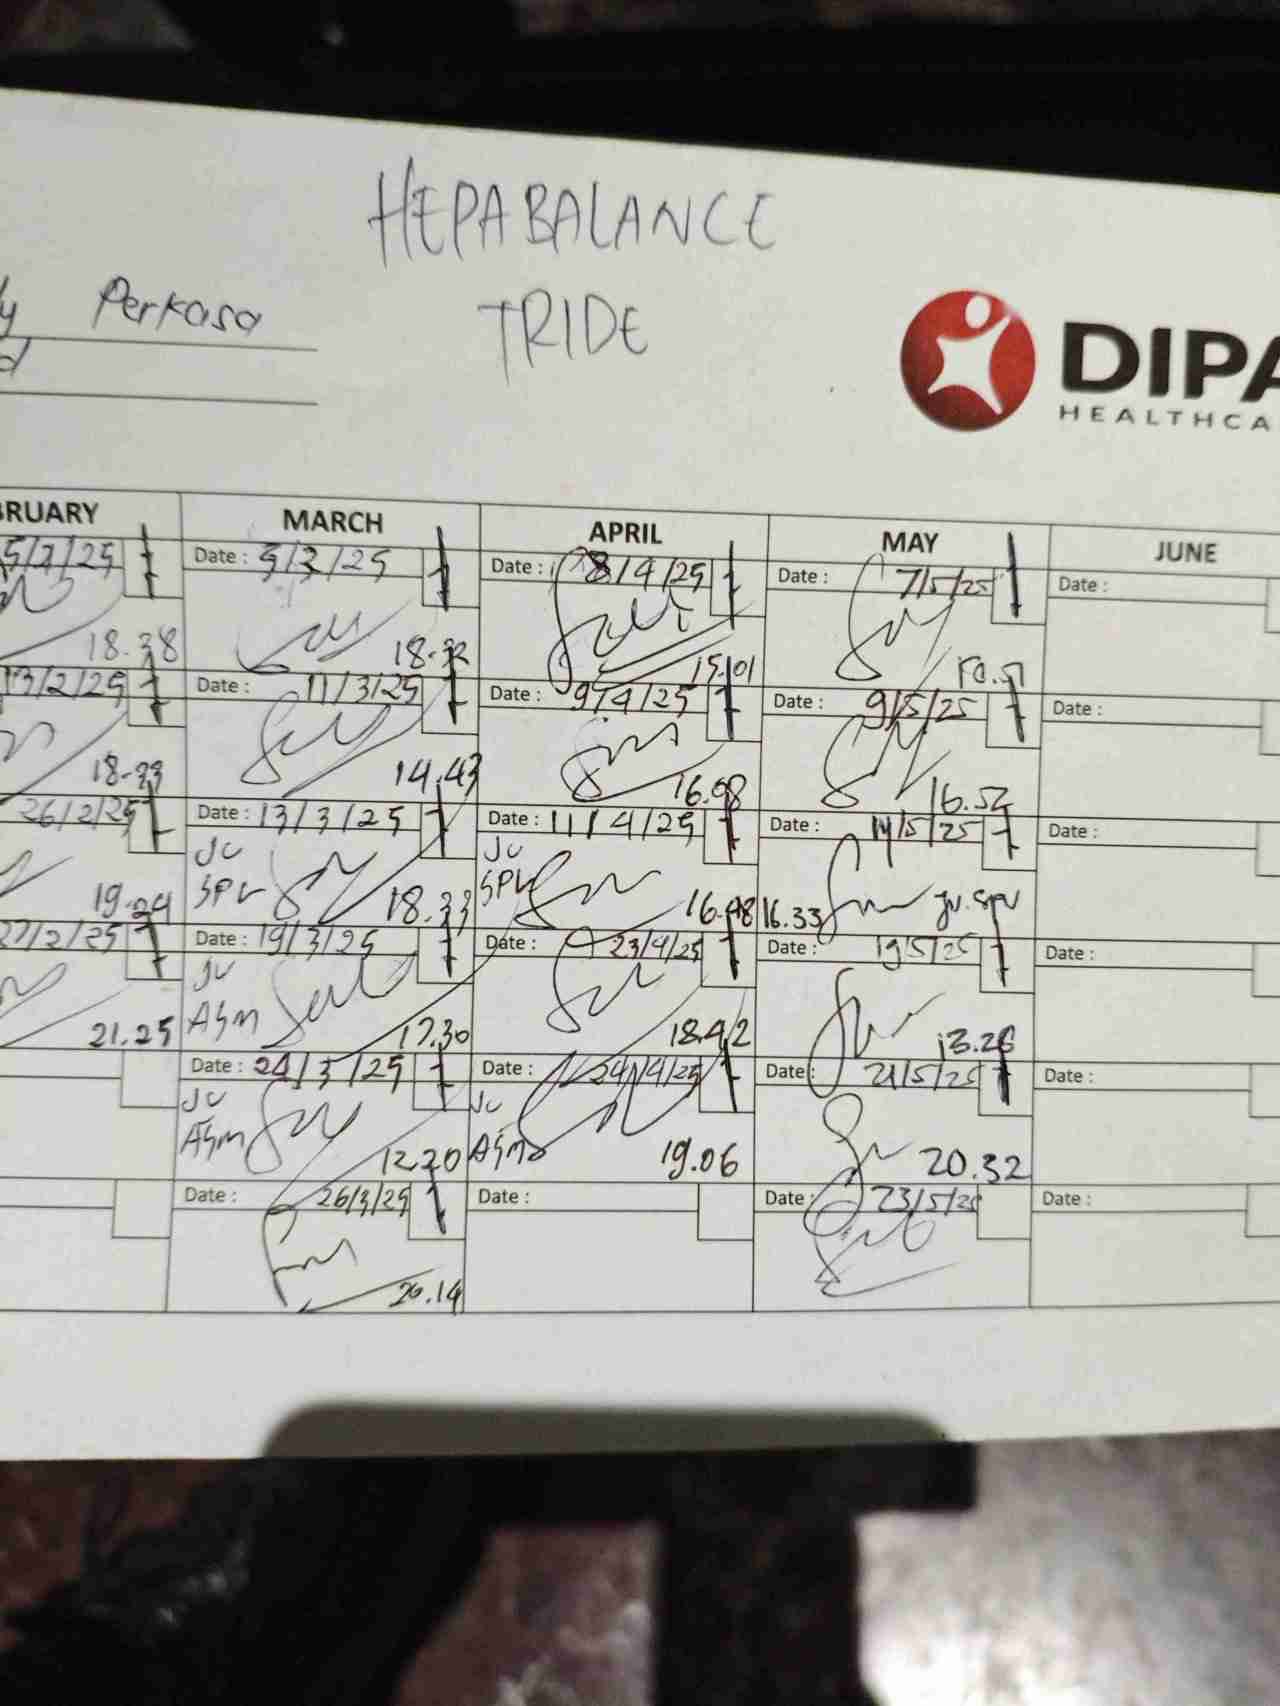 HEPABALANCE
TRIDE
Perkasa
DIPA
HEALTHCA
BRUARY MARCH APRIL MAY JUNE
5/2/25 Date : 5/3/25 Date : 8/4/25 Date : 7/5/25 Date :
18.38 18.32 15.01
13/2/25 Date : 11/3/25 Date : 9/4/25 Date : 9/5/25 Date :
18.33 14.43 16.08 16.52
26/2/25 Date : 13/3/25 Date : 11/4/25 Date : 14/5/25 Date :
JV JV
SPV SPV
19.24 18.33 16.48 16.33 JV. SPV
27/2/25 Date : 19/3/25 Date : 23/4/25 Date : 19/5/25 Date :
JV
21.25 ASM 17.30 18.42 13.26
Date : 24/3/25 Date : 24/4/25 Date : 21/5/25 Date :
JV JV
ASM 12.20 ASM 19.06 20.32
Date : 26/3/25 Date : Date : 23/5/25 Date :
20.14